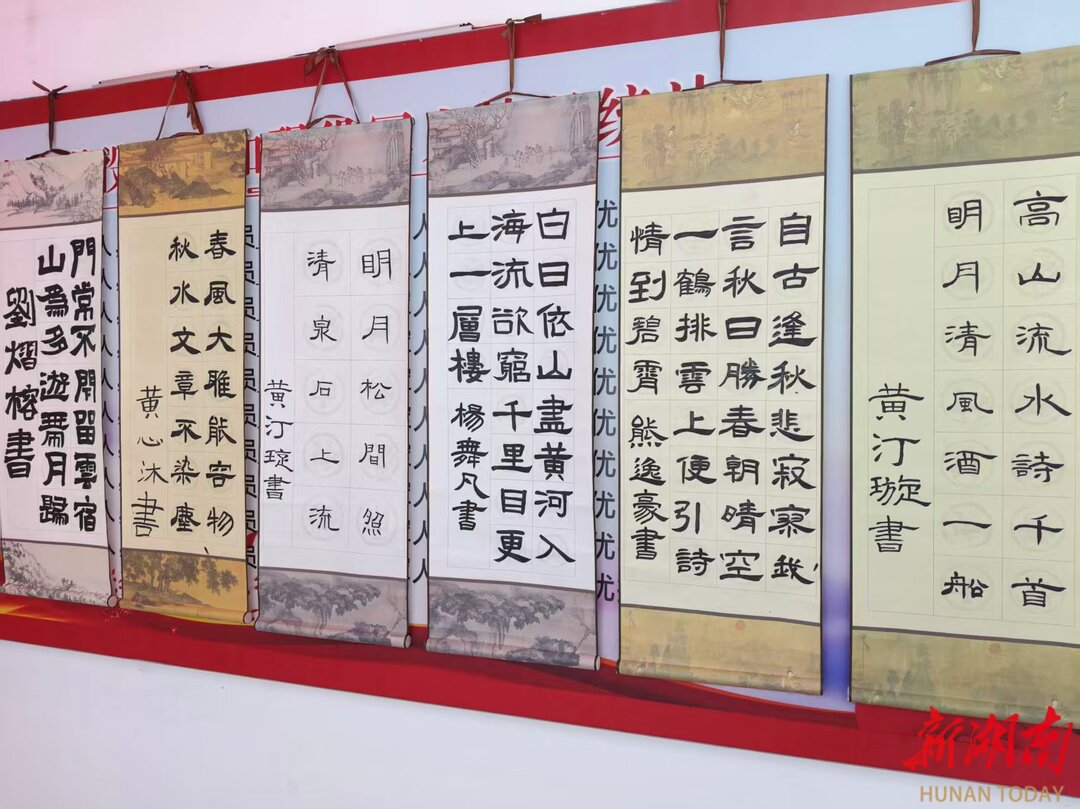 高山流水詩千首
明月清風酒一船
黄汀璇書
自古逢秋悲寂寥我
言秋日勝春朝晴空
一鶴排雲上便引詩
情到碧霄 熊逸豪書
白日依山盡黃河入
海流欲窮千里目更
上一層樓 楊舞凡書
明月松間照
清泉石上流
黄汀璇書
春風大雅能容物
秋水文章不染塵
黄心沐書
門常不開留雲宿
山為多遊帶月歸
劉熠榕書
新湖南
HUNAN TODAY